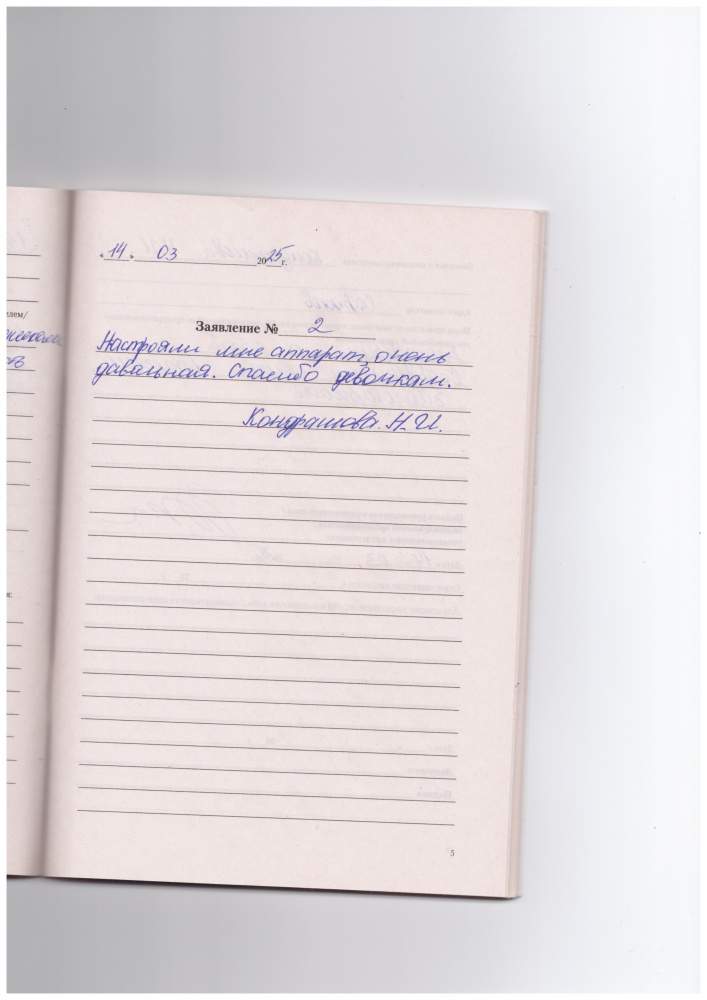 «14» 03 2025г.
Заявление № 2
Настрояли мне аппарат, очень
давальная. Спасибо девочкам.
Кондрашова. Н.И.
5